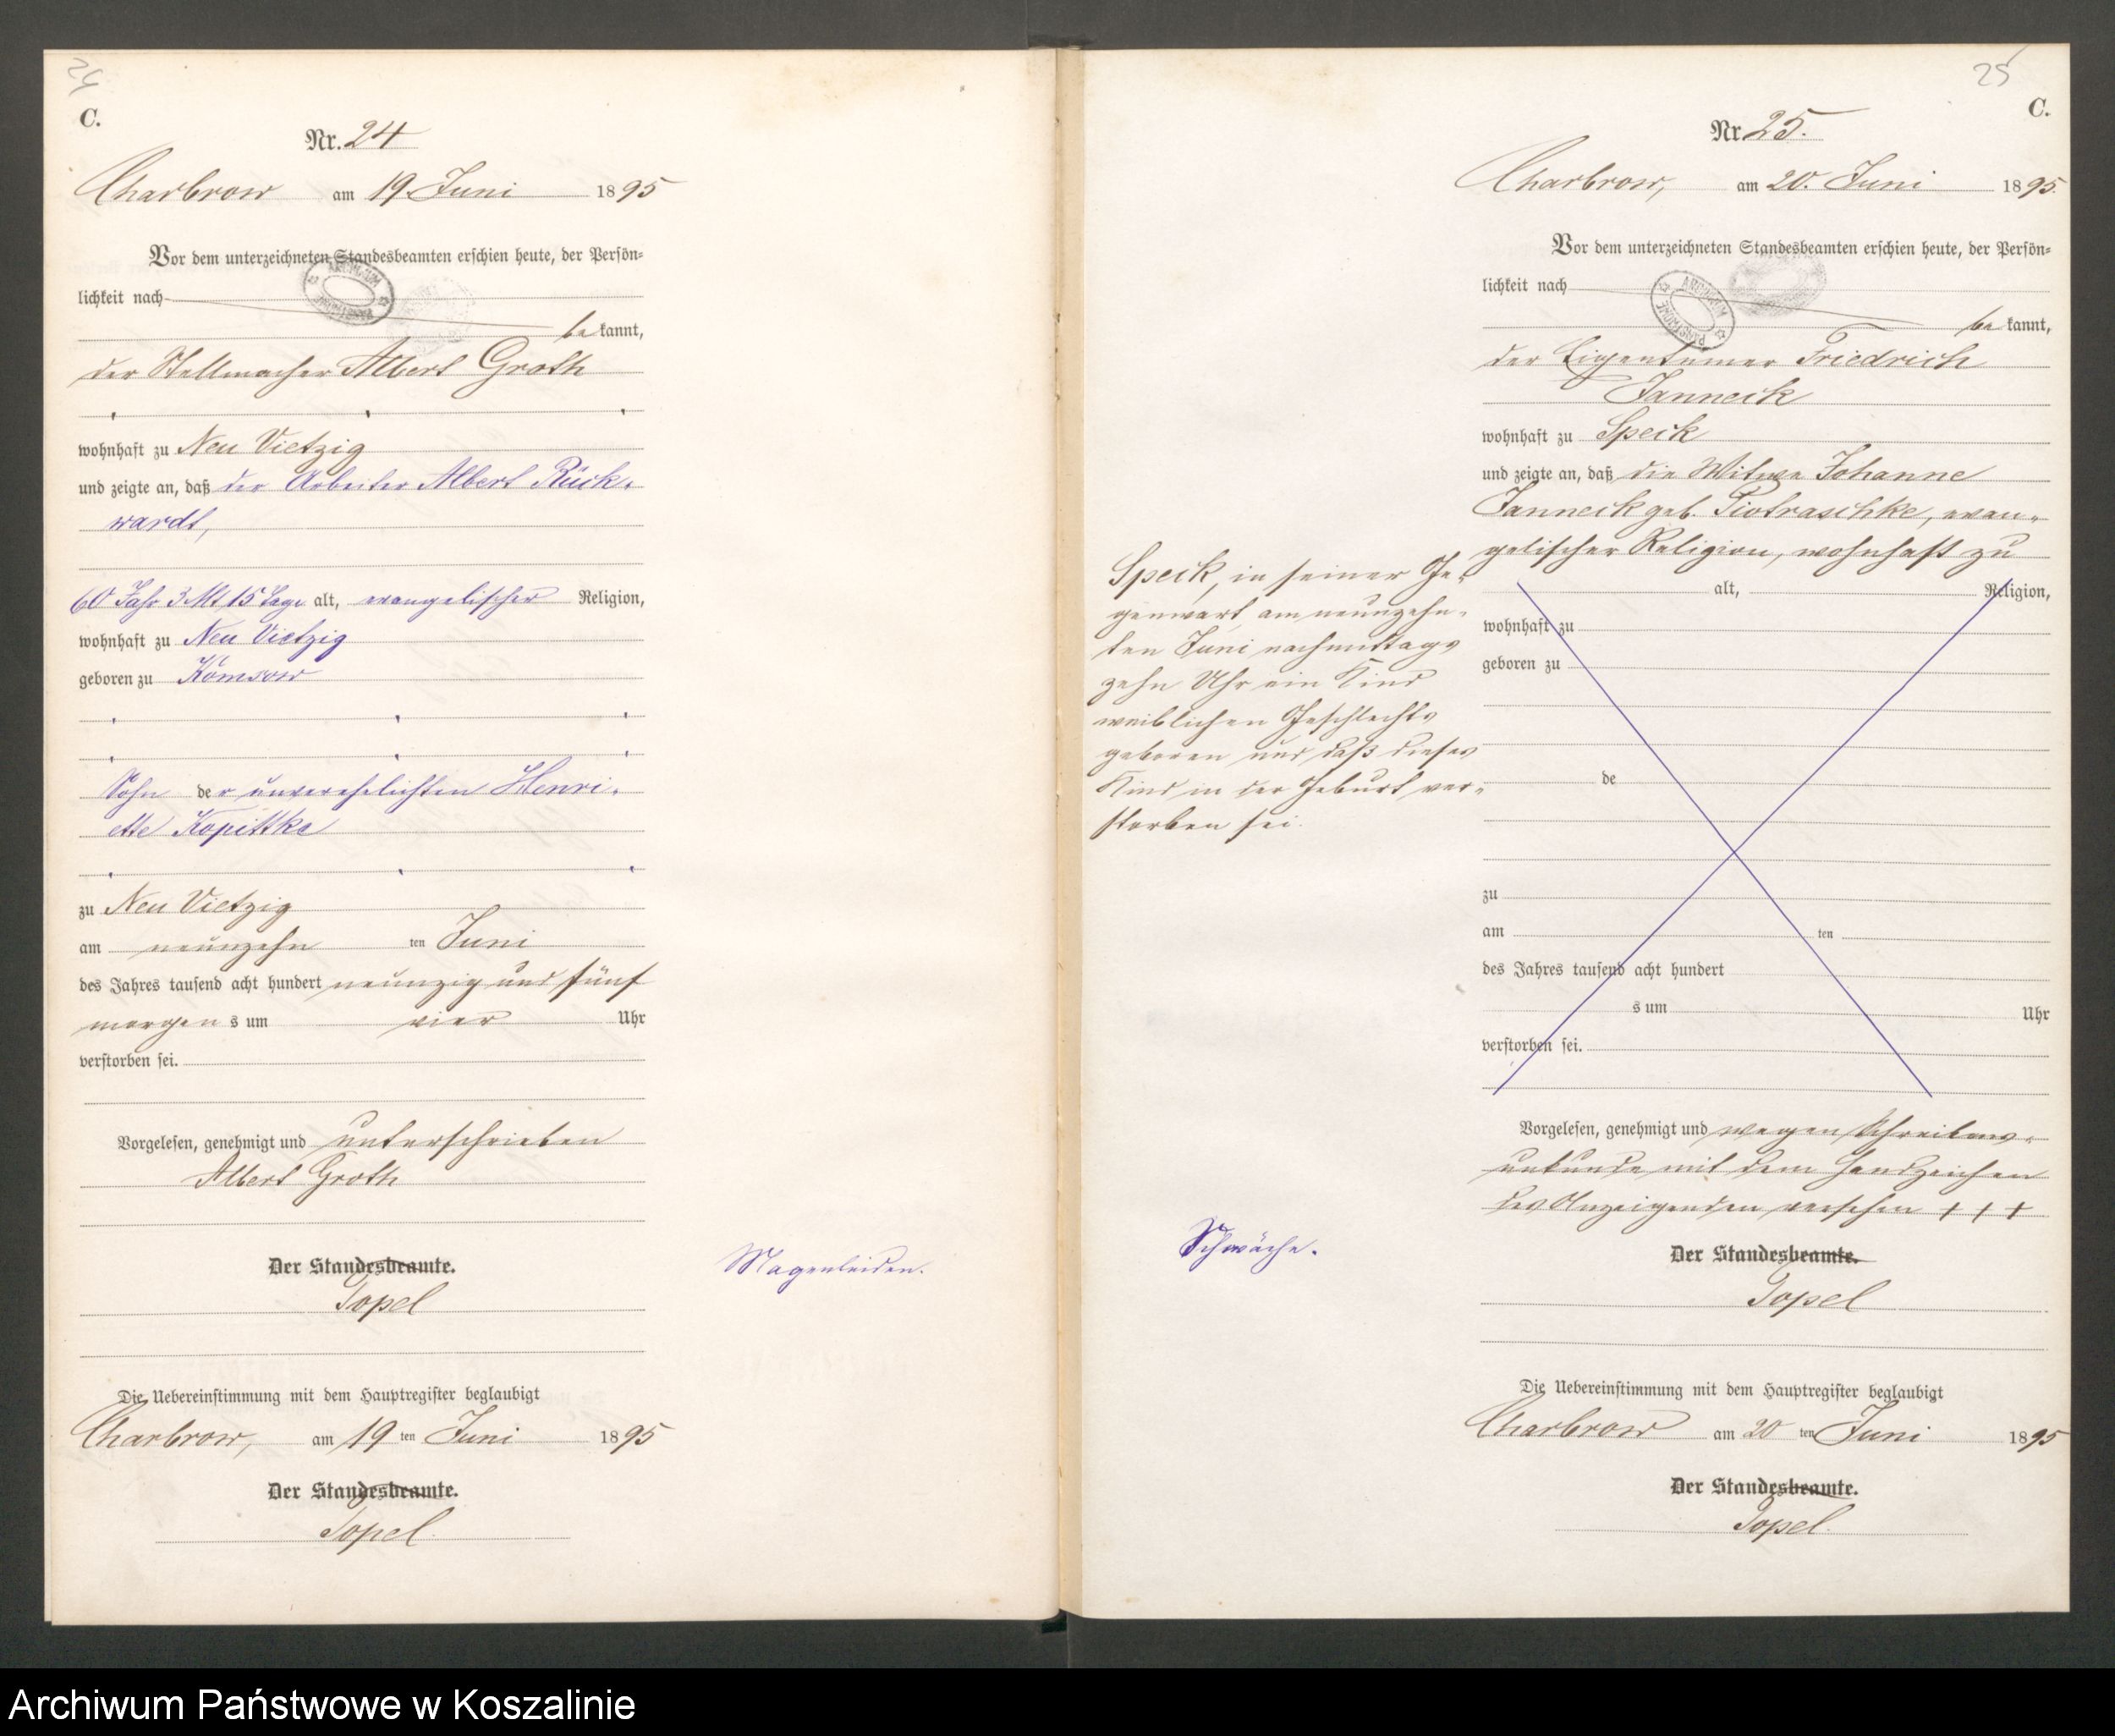 24
C.
Nr. 24
Charbrow am 19 Juni 1895
Vor dem unterzeichneten Standesbeamten erschien heute, der Persön-
lichkeit nach
be kannt,
der Stellmacher Albert Groth
wohnhaft zu Neu Vietzig
und zeigte an, daß der Arbeiter Albert Rück-
wardt,
60 Jahr 3 Mt 15 Tage alt, evangelischer Religion,
wohnhaft zu Neu Vietzig
geboren zu Kömsow
Sohn der unverehelichten Henri-
ette Kopittke
zu Neu Vietzig
am neunzehn ten Juni
des Jahres tausend acht hundert neunzig und fünf
morgen s um vier Uhr
verstorben sei.
Vorgelesen, genehmigt und unterschrieben
Albert Groth
Der Standesbeamte.
Topel
Magenleiden.
Die Uebereinstimmung mit dem Hauptregister beglaubigt
Charbrow, am 19 ten Juni 1895
Der Standesbeamte.
Topel
25
C.
Nr. 25.
Charbrow, am 20. Juni 1895.
Vor dem unterzeichneten Standesbeamten erschien heute, der Persön-
lichkeit nach
be kannt,
der Eigentümer Friedrich
Janneck
wohnhaft zu Speck
und zeigte an, daß die Witwe Johanne
Janneck geb. Piotraschke, evan-
gelischer Religion, wohnhaft zu
Speck, in seiner Ge-
genwart, am neunzehn-
ten Juni nachmittags
zehn Uhr ein Kind
weiblichen Geschlechts
geboren und daß dieses
Kind in der Geburt ver-
storben sei.
alt, Religion,
wohnhaft zu
geboren zu
de
zu
am ten
des Jahres tausend acht hundert
s um Uhr
verstorben sei.
Vorgelesen, genehmigt und wegen Schreibens-
unkunde mit dem Handzeichen
des Anzeigenden versehen + + +
Schwäche.
Der Standesbeamte.
Topel
Die Uebereinstimmung mit dem Hauptregister beglaubigt
Charbrow am 20 ten Juni 1895
Der Standesbeamte.
Topel.
Archiwum Państwowe w Koszalinie